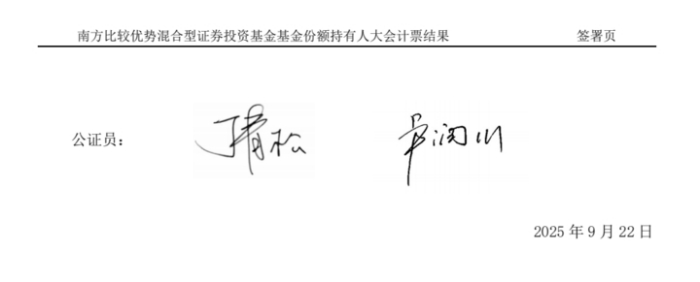 南方比较优势混合型证券投资基金基金份额持有人大会计票结果 签署页
公证员： 丁青松 单润川
2025 年 9 月 22 日